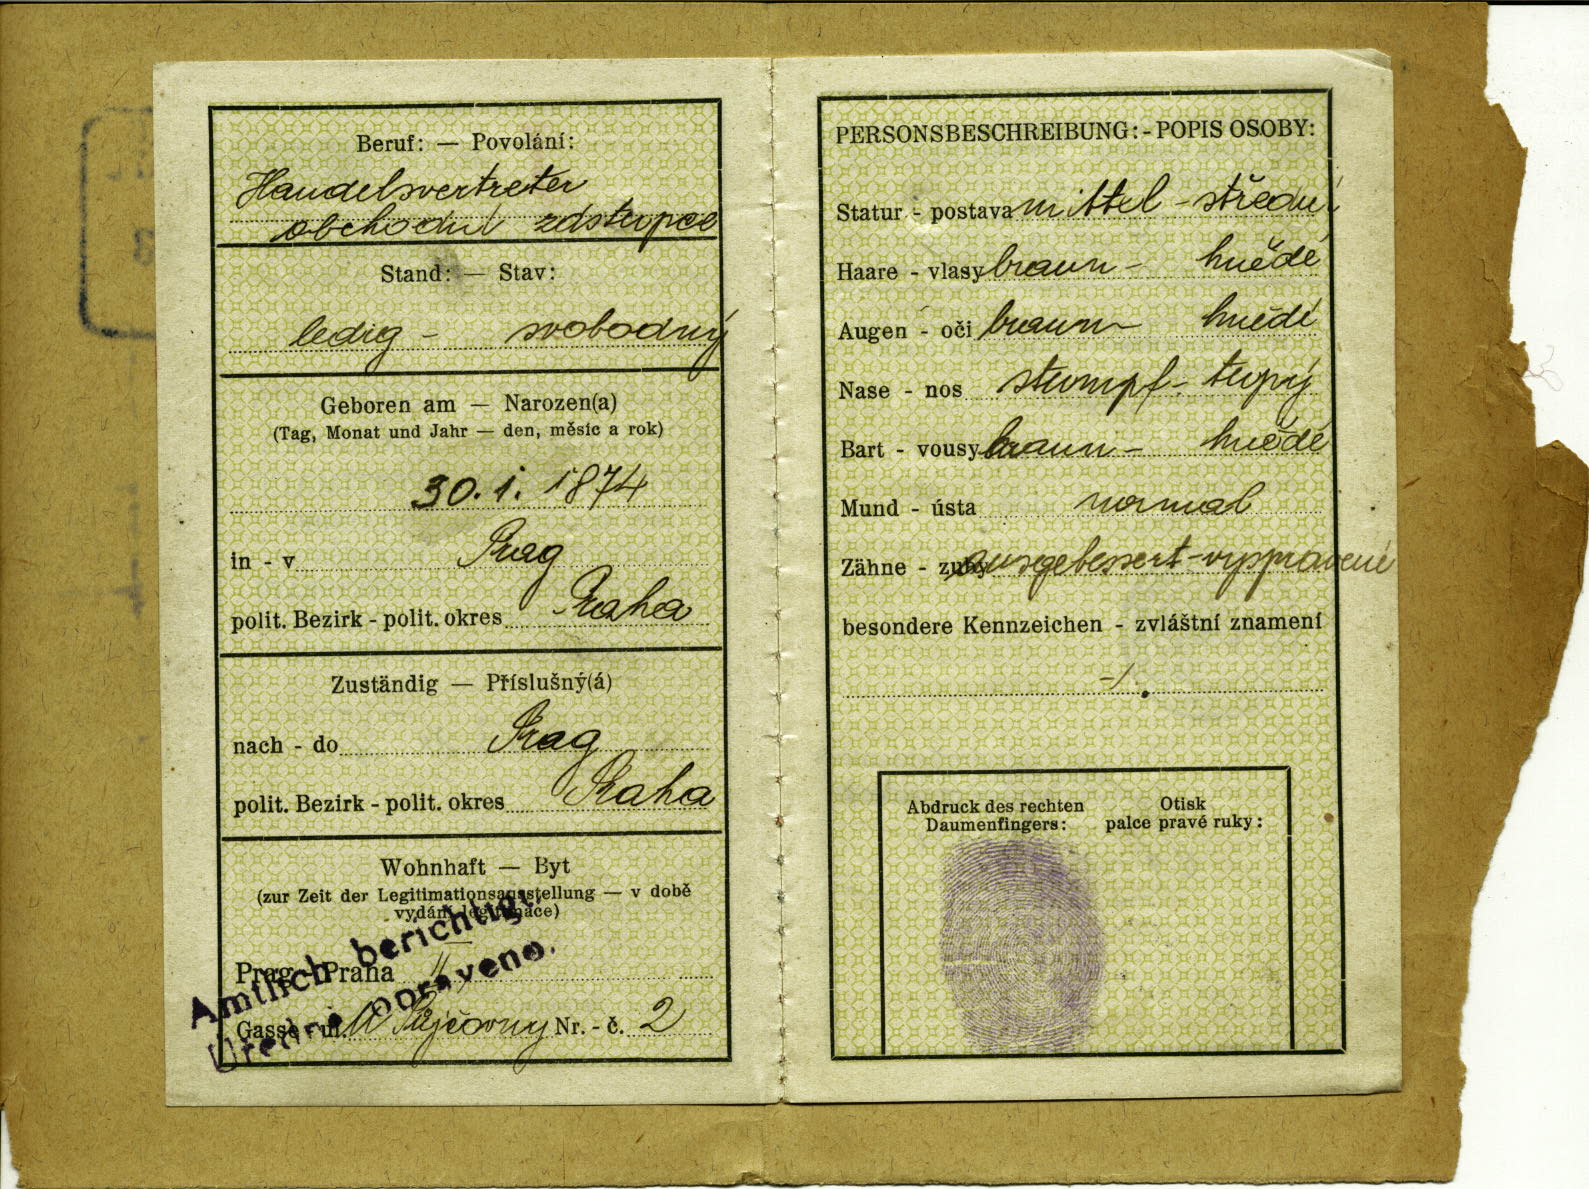 Beruf: — Povolání:
Handelsvertreter
obchodní zástupce
Stand: — Stav:
ledig - svobodný
Geboren am — Narozen(a)
(Tag, Monat und Jahr — den, měsíc a rok)
30. 1. 1874
in - v Prag
polit. Bezirk - polit. okres Praha
Zuständig — Příslušný(á)
nach - do Prag
polit. Bezirk - polit. okres Praha
Wohnhaft — Byt
(zur Zeit der Legitimationsausstellung — v době
vydání legitimace)
Prag - Praha II
Gasse - ul. U Půjčovny Nr. - č. 2
Amtlich berichtigt.
Úředně opraveno.
PERSONSBESCHREIBUNG: - POPIS OSOBY:
Statur - postava mittel - střední
Haare - vlasy braun - hnědé
Augen - oči braun - hnědé
Nase - nos stumpf - tupý
Bart - vousy braun - hnědé
Mund - ústa normal
Zähne - zuby ausgebessert - vyspravené
besondere Kennzeichen - zvláštní znamení
-/.
Abdruck des rechten Daumenfingers:
Otisk palce pravé ruky: